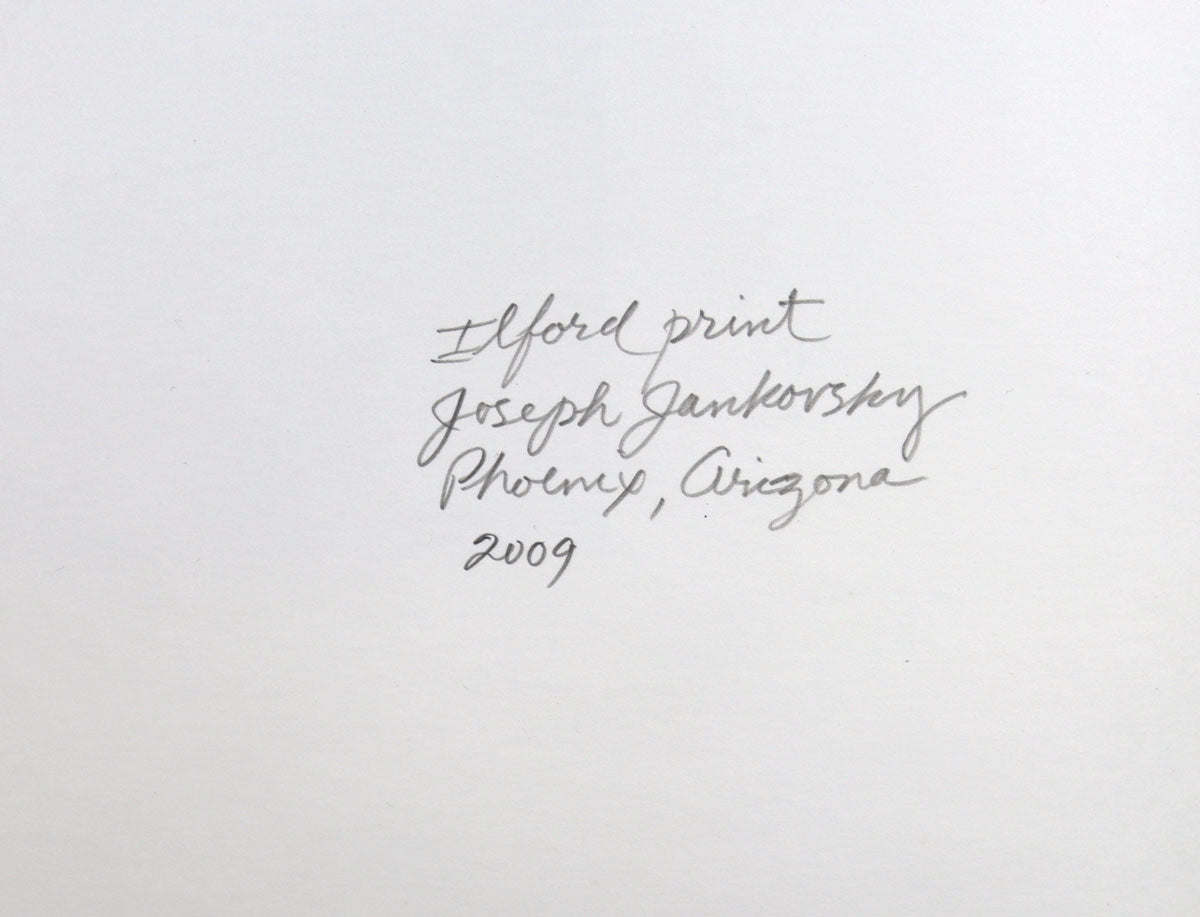 Ilford print
Joseph Jankovsky
Phoenix, Arizona
2009